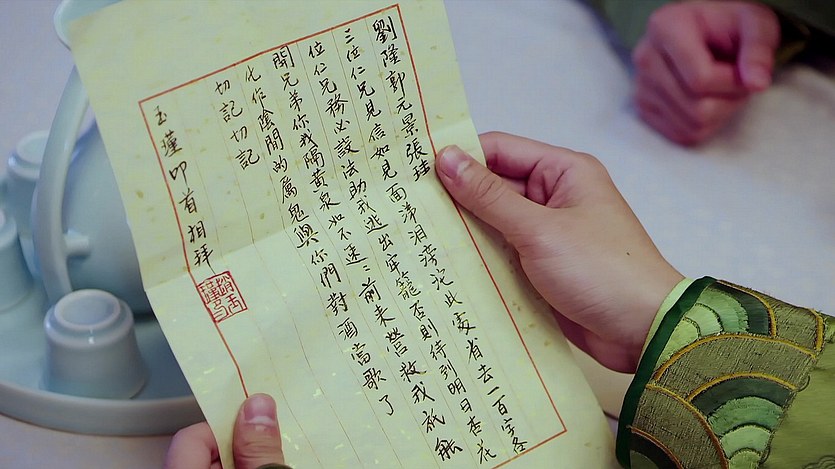 劉隆郭元景張珪
三位仁兄見信如見面涕泪滂沱此處省去一百字各
位仁兄務必設法助我逃出牢籠否則待到明日杏花
開兄弟你我隔黃泉如不速々前来營救我祇能
化作陰間的厲鬼與你們對酒當歌了
切記切記
玉瑾叩首相拜